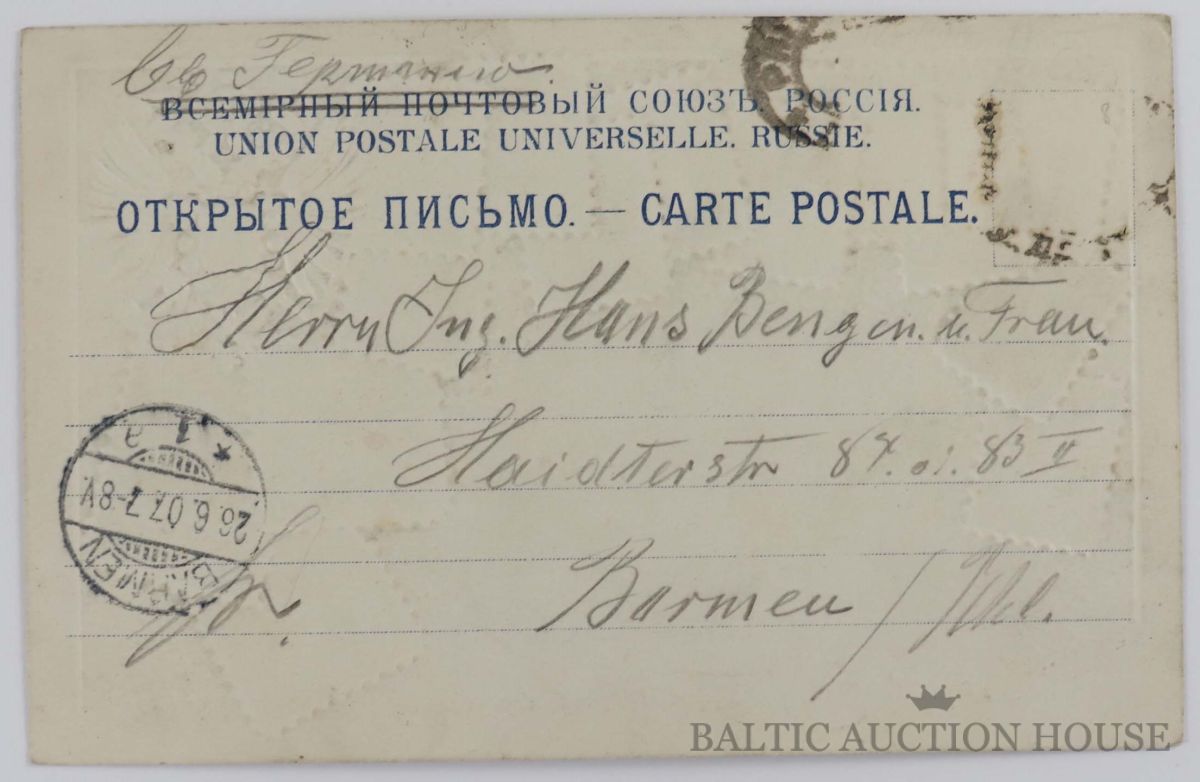 Въ Германію.
ВСЕМІРНЫЙ ПОЧТОВЫЙ СОЮЗЪ. РОССІЯ.
UNION POSTALE UNIVERSELLE. RUSSIE.
ОТКРЫТОЕ ПИСЬМО. — CARTE POSTALE.
Herrn Ing. Hans Bengen. u. Frau.
Haidterstr 87. 83 II
Barmen /
BARMEN
26.6.07.7-8V
* 1 a
BALTIC AUCTION HOUSE